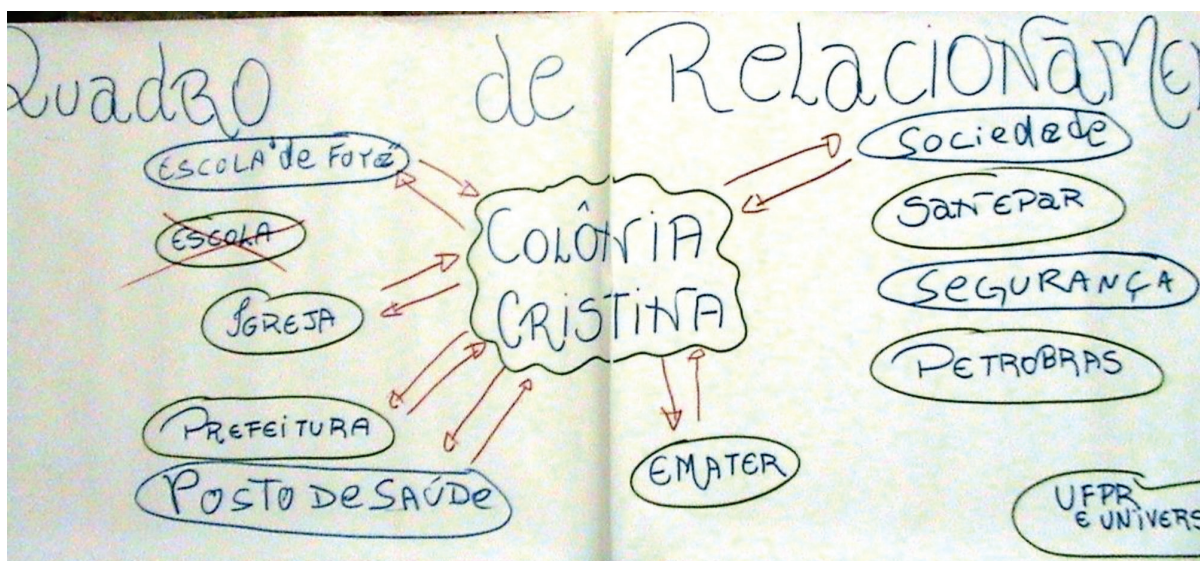 Quadro de Relacioname
Escola "de Fora"
Escola
Igreja
Prefeitura
Posto de Saúde
Colônia
Cristina
Emater
Sociedade
Sanepar
Segurança
Petrobras
UFPR
e Univers